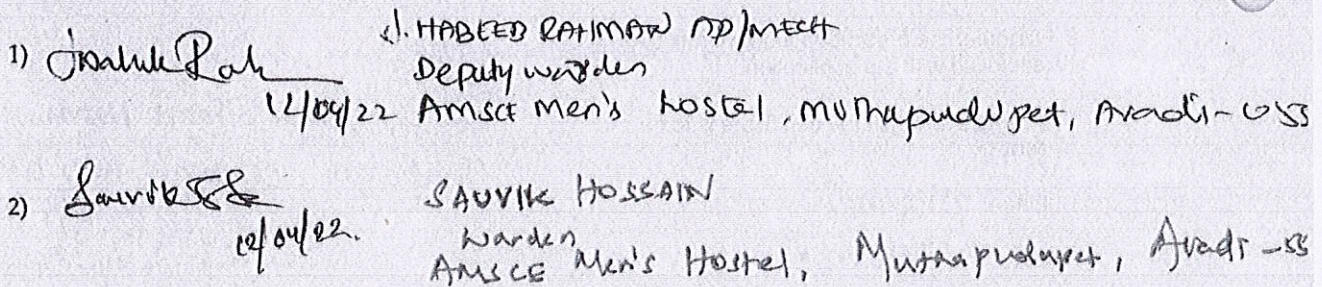 1) J. HABEED RAHMAN AP/MECH
Deputy warden
12/04/22 Amsce men's hostel, muthapudupet, Avadi-055
2) Sauvik SAUVIK HOSSAIN
12/04/22. Warden
AMSCE Men's Hostel, Muthapudupet, Avadi -55